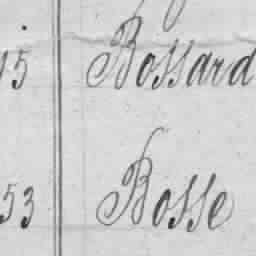 15 Bossard
53 Bosse